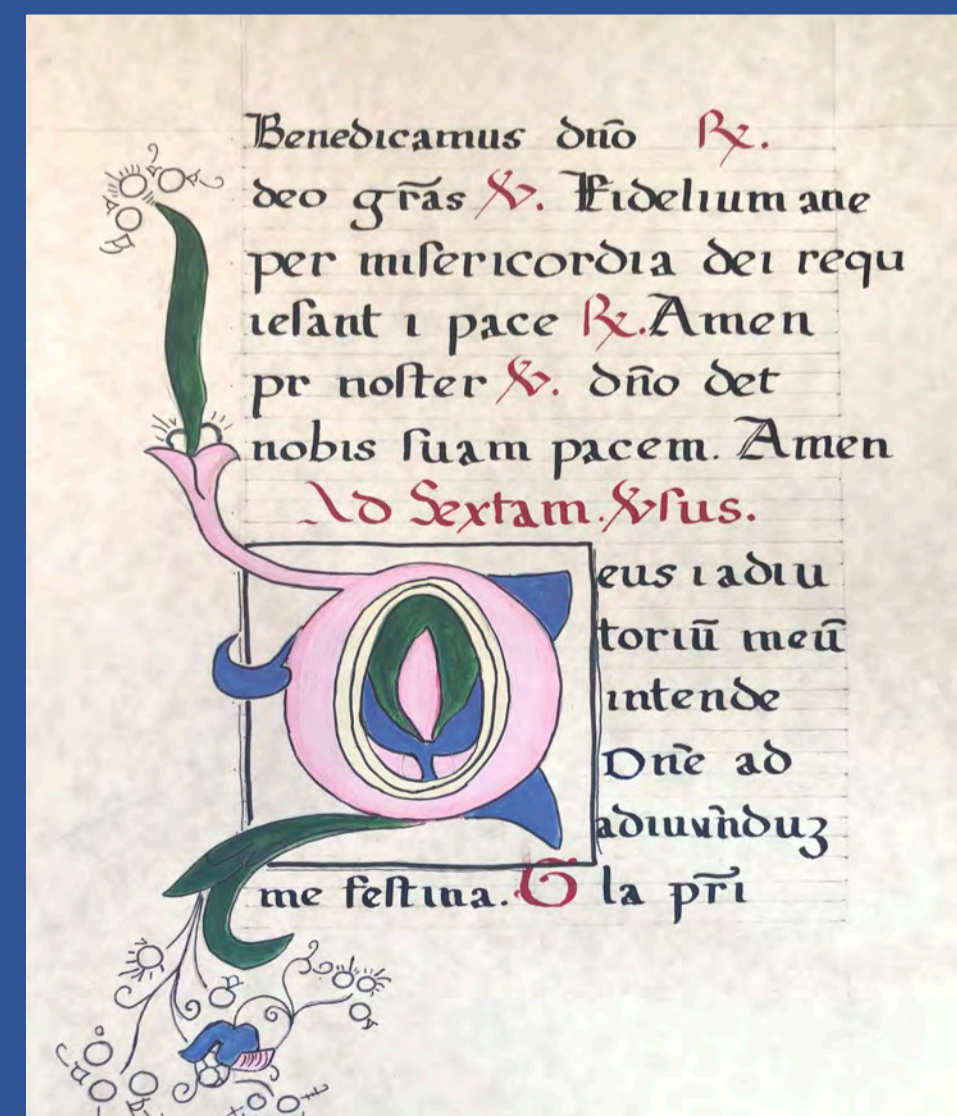 Benedicamus dn̄o ℞.
deo gr̄as ℣. Fidelium ane
per miſericordia dei requ
ieſant i pace ℞. Amen
pr noſter ℣. dn̄o det
nobis ſuam pacem. Amen
Ad Sextam. ℣ſus.
Deus i adiu
toriū meū
intende
Dn̄e ad
adiuvn̄duʒ
me feſtina. G la pr̄i